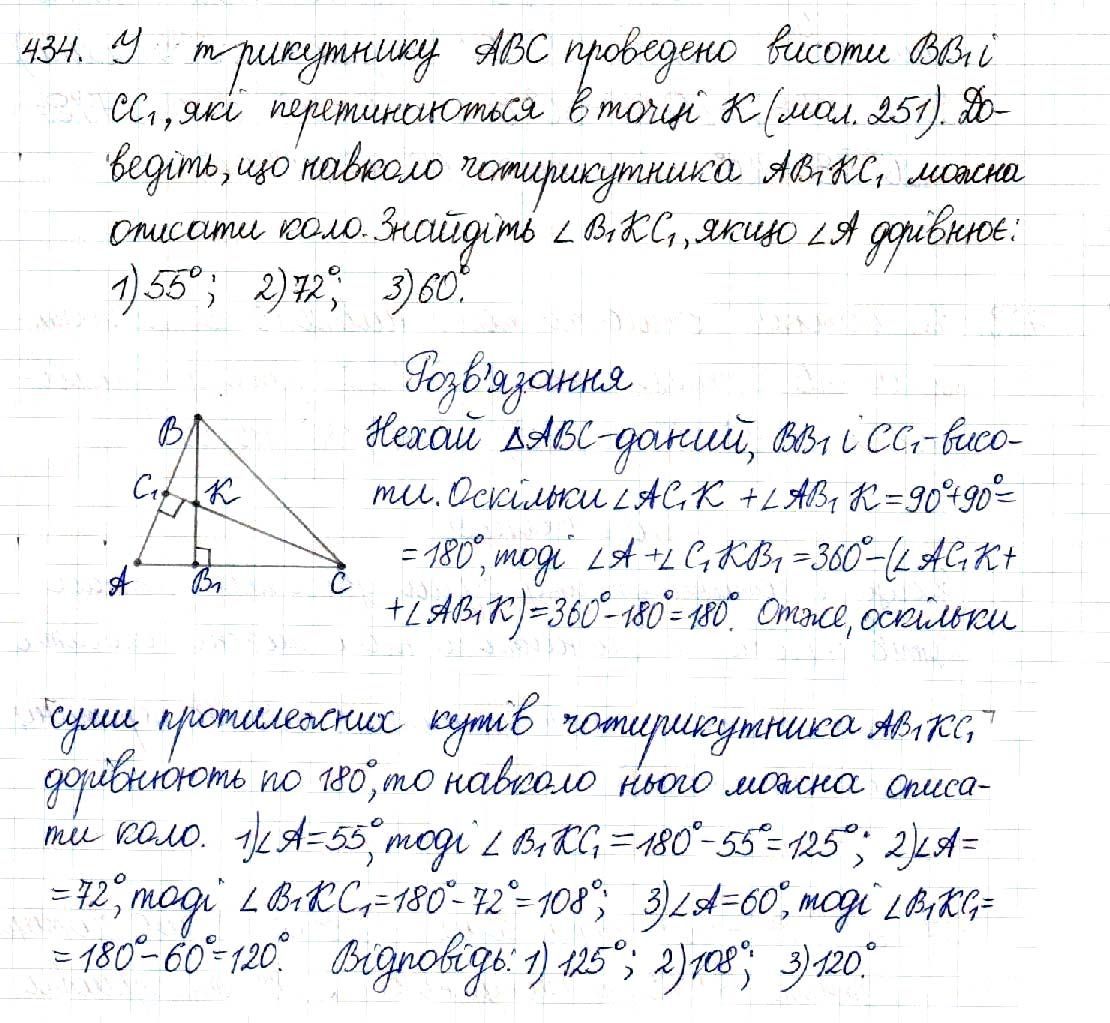 434. У трикутнику ABC проведено висоти BB₁ і
CC₁, які перетинаються в точці K (мал. 251). До-
ведіть, що навколо чотирикутника AB₁KC₁ можна
описати коло. Знайдіть ∠B₁KC₁, якщо ∠A дорівнює:
1) 55°; 2) 72°; 3) 60°.
Розв'язання
B
C₁
K
A
B₁
C
Нехай ΔABC-даний, BB₁ і CC₁-висо-
ти. Оскільки ∠AC₁K + ∠AB₁K = 90°+90°=
= 180°, тоді ∠A + ∠C₁KB₁ = 360°-(∠AC₁K+
+∠AB₁K)=360°-180°=180°. Отже, оскільки
суми протилежних кутів чотирикутника AB₁KC₁
дорівнюють по 180°, то навколо нього можна описа-
ти коло. 1)∠A=55°, тоді ∠B₁KC₁ = 180°-55°=125°; 2)∠A=
=72°, тоді ∠B₁KC₁=180°-72°=108°; 3)∠A=60°, тоді ∠B₁KC₁=
=180°-60°=120°. Відповідь: 1) 125°; 2)108°; 3)120°.